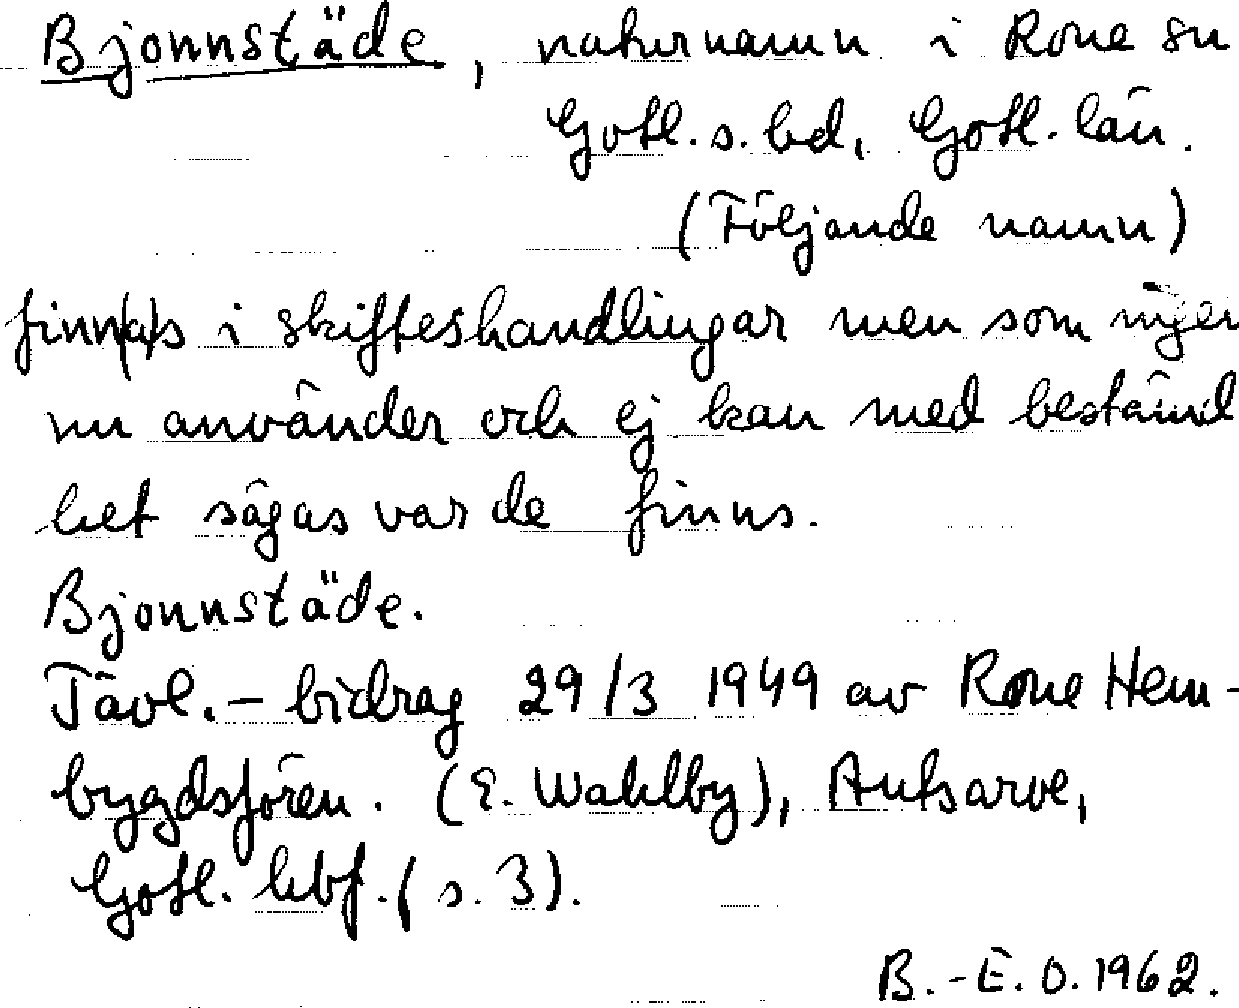 Bjonnstäde, naturnamn i Rone sn
Gotl. s. hd, Gotl. län.
(Följande namn)
finn(a)s i skifteshandlingar men som ingen
nu använder och ej kan med bestämd
het sägas var de finns.
Bjonnstäde.
Tävl. - bidrag 29/3 1949 av Rone Hem-
bygdsfören. (E. Wahlby), Autsarve,
Gotl. hbf. (s. 3).
B.-E. O. 1962.